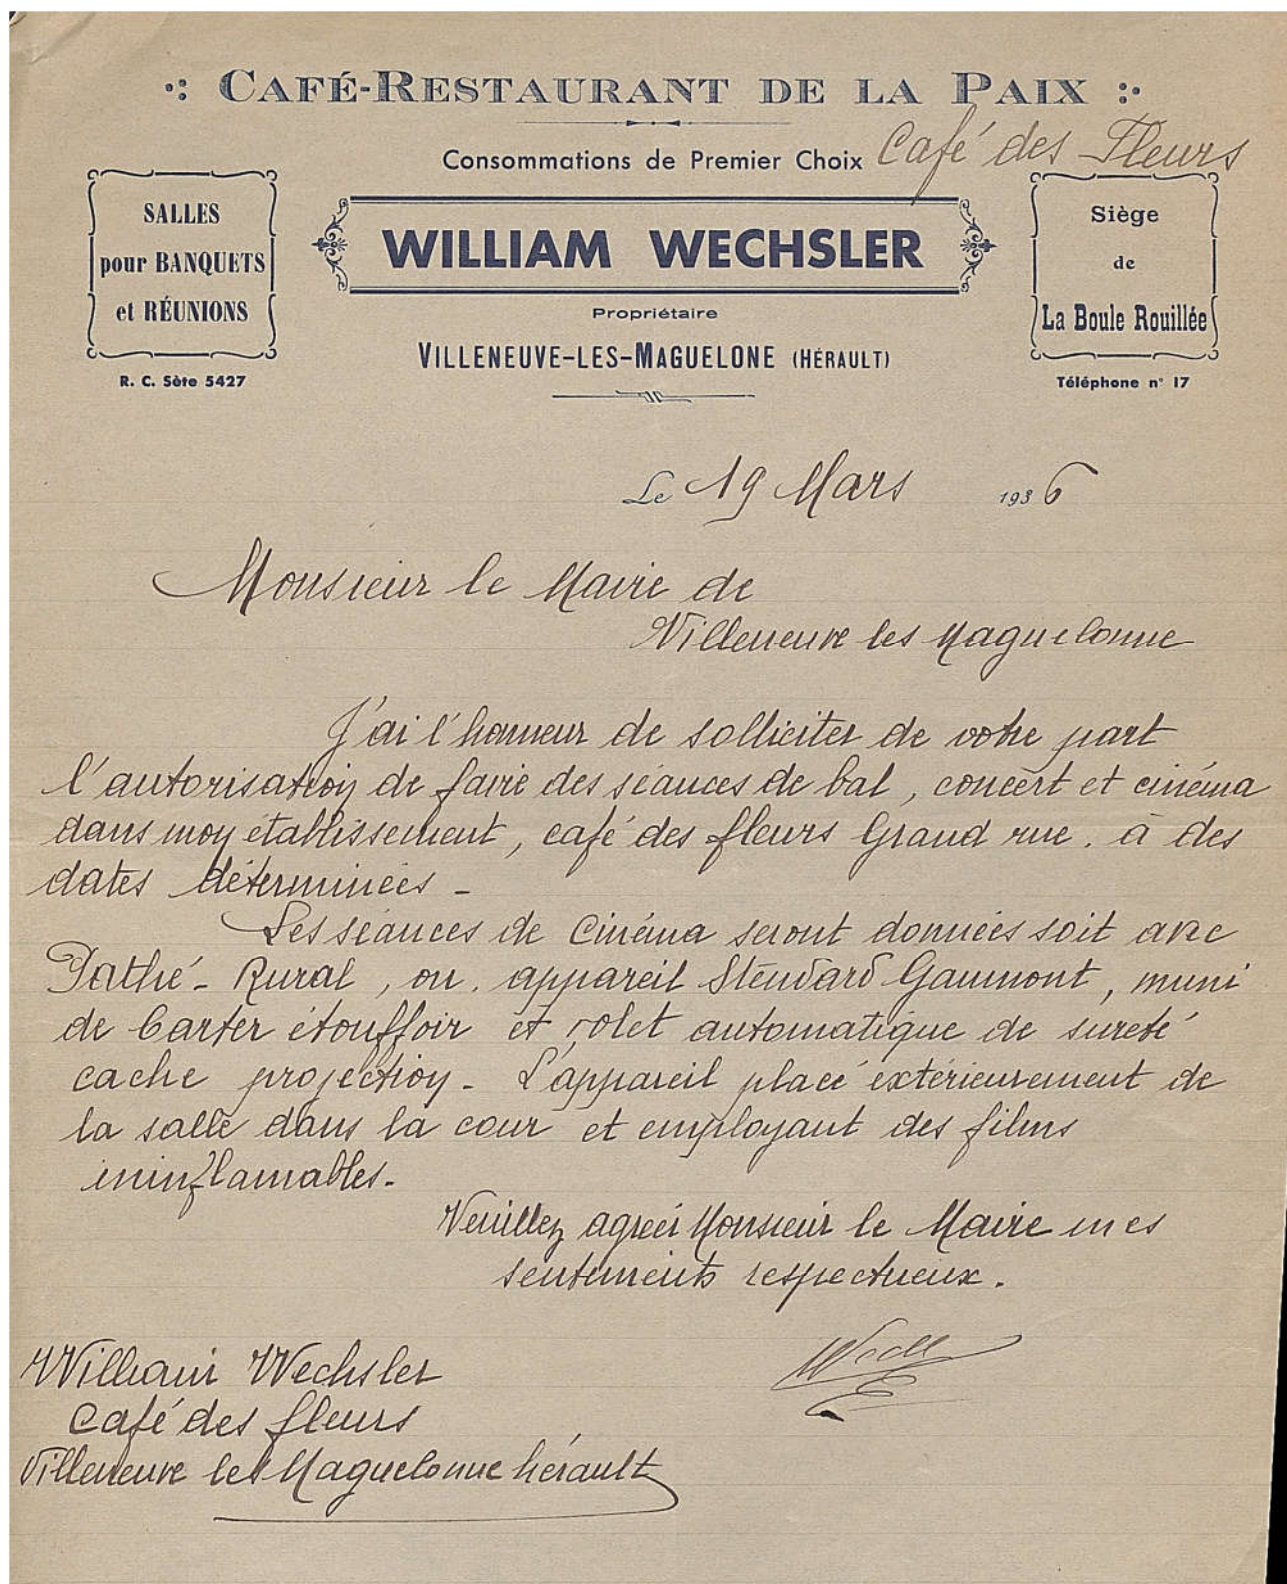 CAFÉ-RESTAURANT DE LA PAIX
Consommations de Premier Choix Café des Fleurs
SALLES
pour BANQUETS
et RÉUNIONS
R. C. Sète 5427
WILLIAM WECHSLER
Propriétaire
VILLENEUVE-LES-MAGUELONE (HÉRAULT)
Siège
de
La Boule Rouillée
Téléphone n° 17
Le 19 Mars 1936
Monsieur le Maire de
Villeneuve les Maguelonne
J'ai l'honneur de solliciter de votre part
l'autorisation de faire des séances de bal, concert et cinéma
dans mon établissement, café des fleurs Grand rue. à des
dates déterminées -
Les séances de Cinéma seront données soit avec
Pathé - Rural, ou. appareil Stendard Gaumont, muni
de Carter étouffoir et volet automatique de sureté
cache projection - L'appareil placé extérieurement de
la salle dans la cour et employant des films
ininflamables.
Veuillez agréer Monsieur le Maire mes
sentiments respectueux.
William Wechsler
Café des fleurs
Villeneuve les Maguelonne hérault